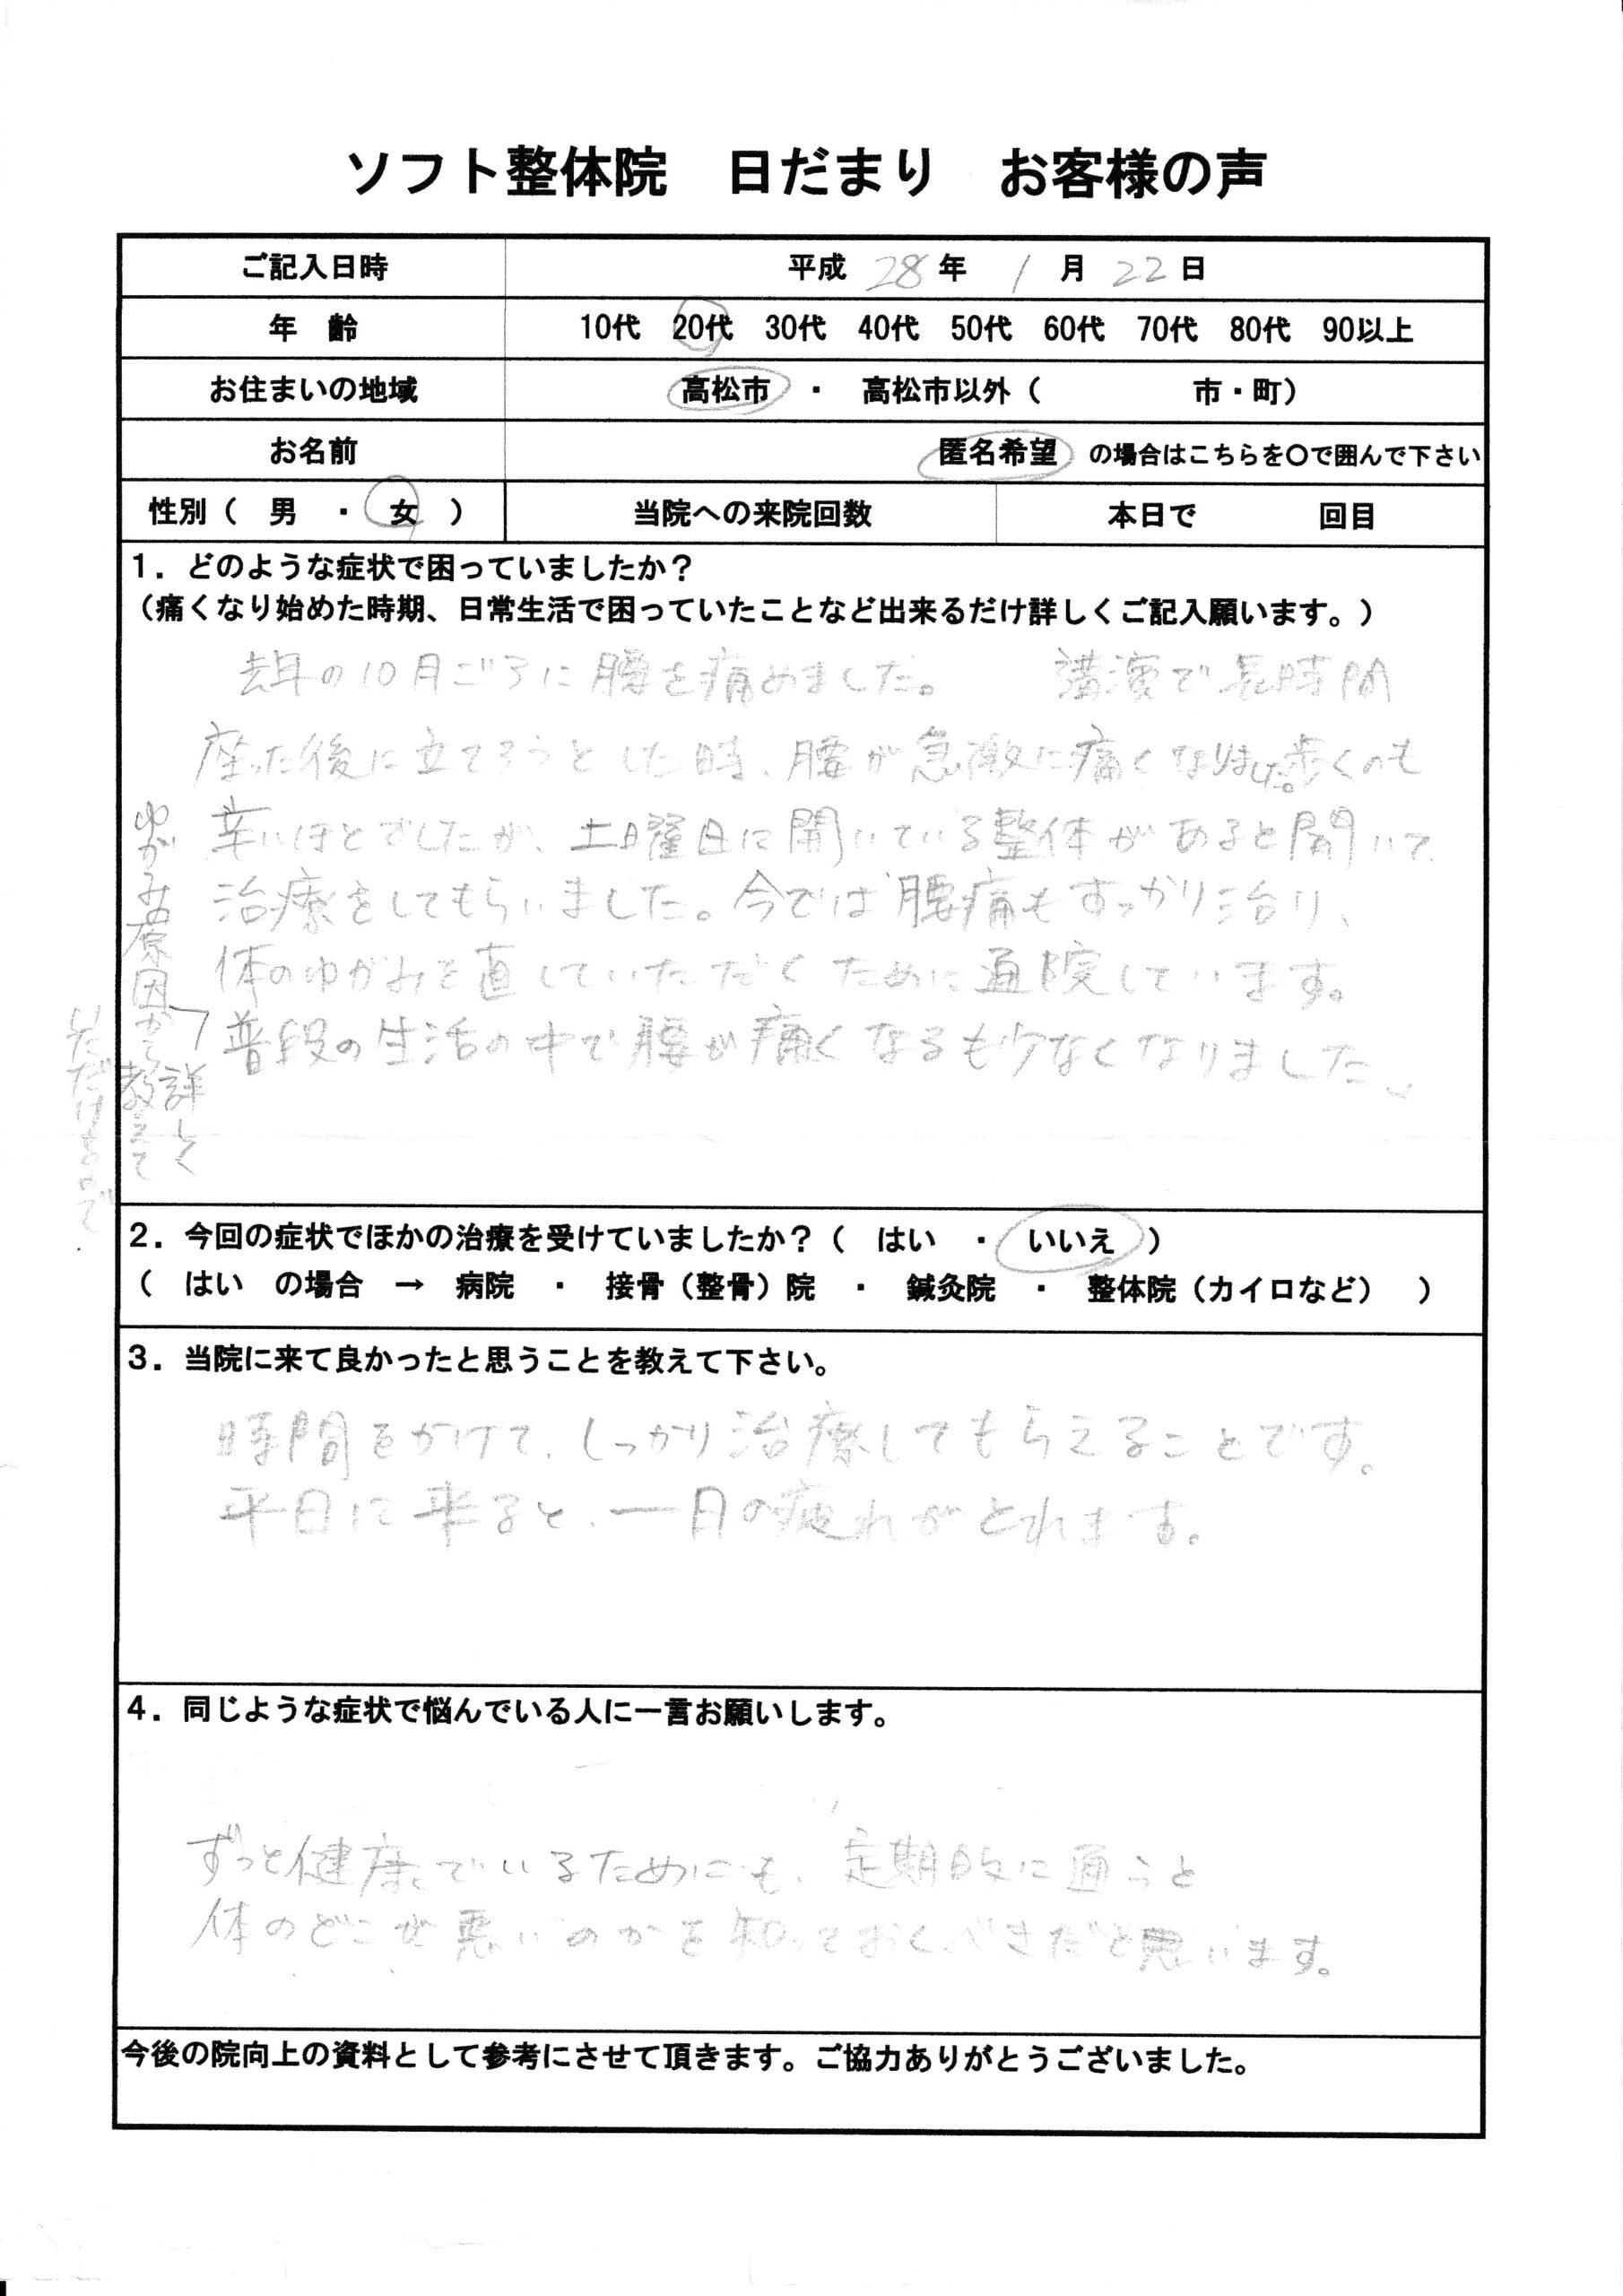 ソフト整体院　日だまり　お客様の声
ご記入日時　平成 28 年 1 月 22 日
年　齢　10代　20代　30代　40代　50代　60代　70代　80代　90以上
お住まいの地域　高松市　・　高松市以外（　　　市・町）
お名前　匿名希望　の場合はこちらを〇で囲んで下さい
性別（　男　・　女　）　当院への来院回数　本日で　　回目
１．どのような症状で困っていましたか？
（痛くなり始めた時期、日常生活で困っていたことなど出来るだけ詳しくご記入願います。）
去年の10月ごろに腰を痛めました。　講演で長時間
座った後に立てろうとした時、腰が急激に痛くなりました。歩くのも
辛いほどでしたが、土曜日に開いている整体があると聞いて、
治療をしてもらいました。今では腰痛もすっかり治り、
体のゆがみを直していただくために通院しています。
ゆがみの原因から
詳しく
教えて
いただけるので
普段の生活の中で腰が痛くなるも少なくなりました。
２．今回の症状でほかの治療を受けていましたか？（　はい　・　いいえ　）
（　はい　の場合　→　病院　・　接骨（整骨）院　・　鍼灸院　・　整体院（カイロなど）　）
３．当院に来て良かったと思うことを教えて下さい。
時間をかけて、しっかり治療してもらえることです。
平日に来ると、一日の疲れがとれます。
４．同じような症状で悩んでいる人に一言お願いします。
ずっと健康でいるためにも、定期的に通うと
体のどこが悪いのかを知っておくべきだと思います。
今後の院向上の資料として参考にさせて頂きます。ご協力ありがとうございました。